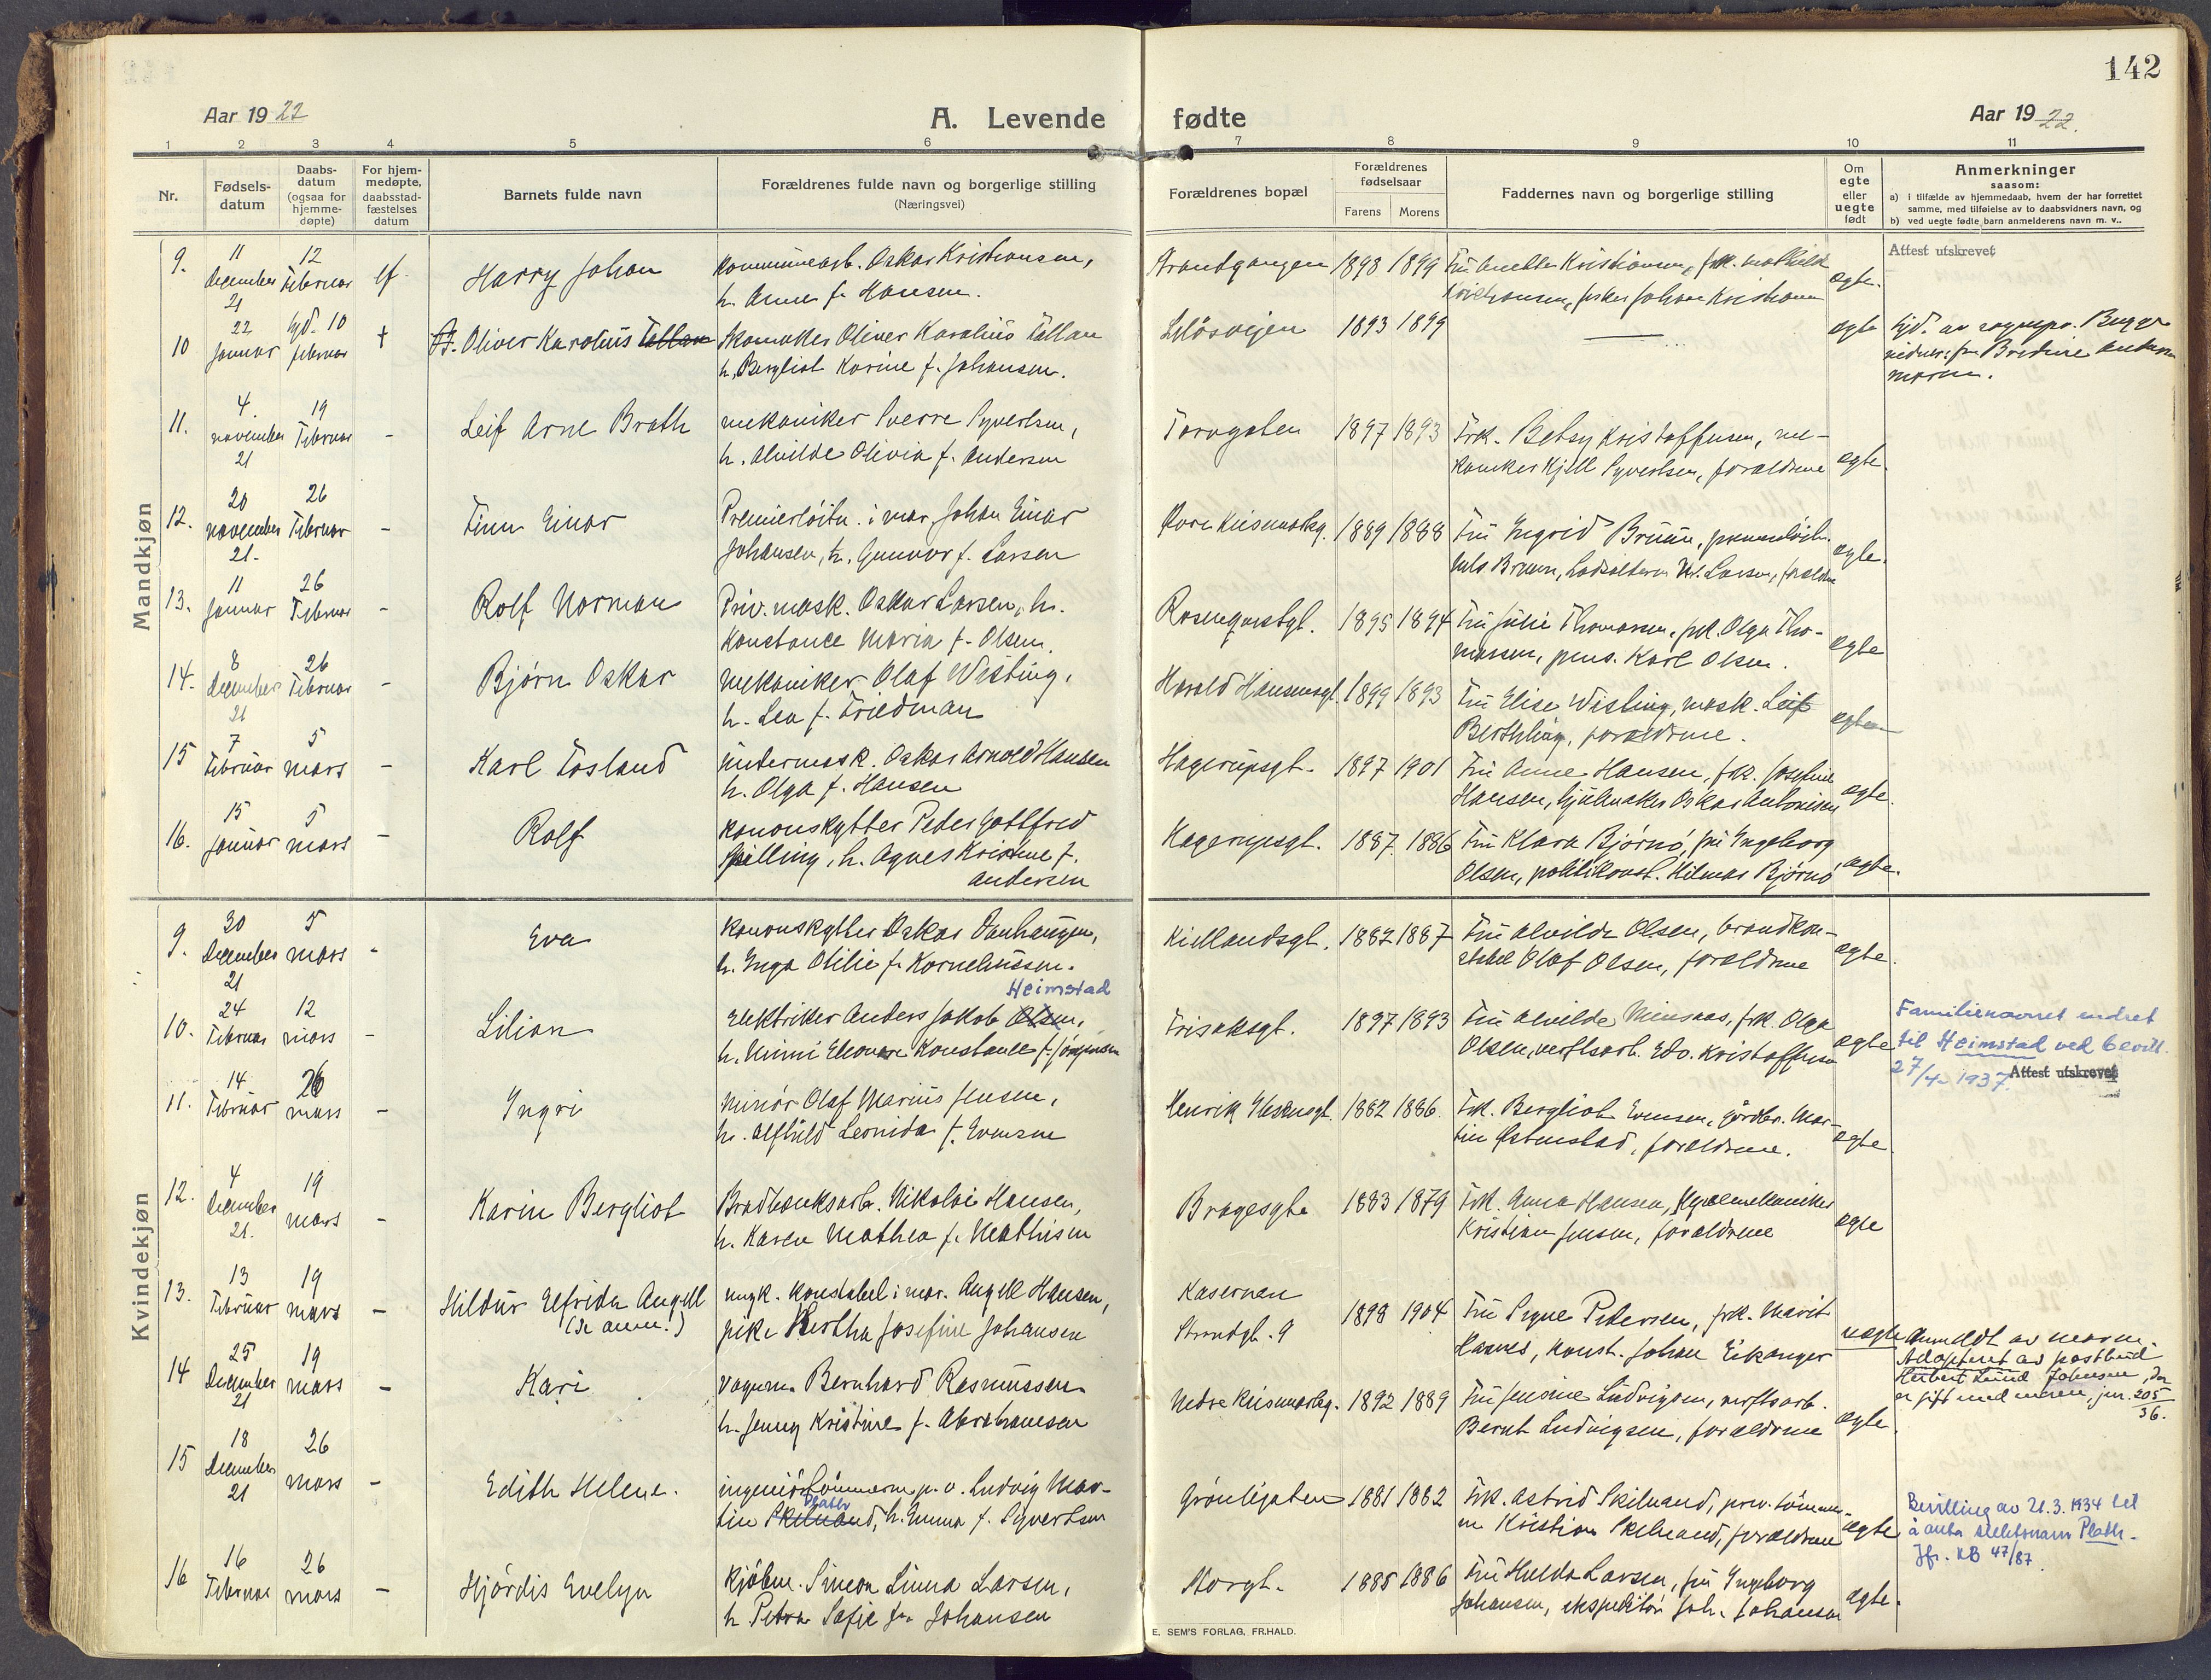 142
Aar 1922
A. Levende fødte
Aar 1922.
1 2 3 4 5 6 7 8 9 10 11
Nr.
Fødsels-
datum
Daabs-
datum
(ogsaa for
hjemme-
døpte)
For hjem-
medøpte,
daabsstad-
fæstelses
datum
Barnets fulde navn
Forældrenes fulde navn og borgerlige stilling
(Næringsvei)
Forældrenes bopæl
Forældrenes
fødselsaar
Farens Morens
Faddernes navn og borgerlige stilling
Om
egte
eller
uegte
født
Anmerkninger
saasom:
a) i tilfælde av hjemmedaab, hvem der har forrettet
samme, med tilføielse av to daabsvidners navn, og
b) ved uegte fødte barn anmelderens navn m. v..
Mandkjøn
9. 11 December 21 12 Februar Harry Johan
kommunearb. Oskar Kristiansen,
h. Anna f. Hansen.
Strandgangen 1898 1899
Fru Anette Kristiansen, frk. Mathilde
Kristiansen, fisker Johan Kristiansen
egte.
Attest utskrevet
10 22 Januar hjd. 10 februar † Oliver Karolius Tallan
Skomaker Oliver Karolius Tallan
h. Bergliot Karine f. Johansen.
1893 1899 — egte
hjd. av sognepr. Bugge
vidner: fru Bredine Andersen
moren.
11. 4. november 21 19 Februar - Leif Arne Brath
mekaniker Sverre Syvertsen,
h. Alvilde Olivia f. Andersen
Torvgaten 1897 1893
Frk. Betsy Kristoffersen, me-
kaniker Kjell Syvertsen, forældrene
egte.
12. 20 november 21. 26 Februar - Finn Einar
Premierløitn. i mar. Johan Einar
Johansen, h. Gunvor f. Larsen
Øvre Keisemarkg. 1889 1888
Fru Ingrid Bruun, premierløitn.
Nils Bruun, Larsen, forældre
egte.
13. 11 Januar 26 Februar - Rolf Norman
Priv. mask. Oskar Larsen, h.
Konstance Maria f. Olsen.
Rosenqvistgt. 1895 1894
Fru Julie Thomassen, frk. Olga Tho-
massen, pens. Karl Olsen.
egte
14. 8 December 21 26 Februar - Bjørn Oskar
mekaniker Olaf Wisting,
h. Lea f. Friedman
Harald Hansensgt. 1899 1893
Fru Elise Wisting, mask. Leif
Berthling, forældrene.
egte
15 7 Februar 5 mars - Karl Tosland
undermask. Oskar Arnold Hansen
h. Olga f. Hansen
Hagerupsgt. 1897 1901
Fru Anne Hansen, frk. Josefine
Hansen, hjulmaker Oskar Antonisen
egte.
16. 15 Januar 5 mars - Rolf
kanonskytter Peder Gottfred
Spilling, h. Agnes Kristine f.
Andersen
Hagerupsgt. 1887. 1886
Fru Klara Bjørnø, fru Ingeborg
Olsen, politikonst. Hilmar Bjørnø
egte.
Kvindekjøn
9. 30 December 21 5 mars - Eva
kanonskytter Oskar Danhaugen,
h. Inga Otilie f. Korneliussen.
Kiellandsgt. 1882 1887
Fru Alvilde Olsen, brandkon-
stabel Olaf Olsen, forældrene
egte.
10. 24 Februar 12 mars - Lilian
Heimstad
Elektriker Anders Jakob Olsen,
h. Minni Eleonore Konstance f. Jörgensen
Frisaksgt. 1897 1893
Fru Alvilde Miensaas, frk. Olga
Olsen, verftsarb. Edv. Kristoffersen
egte.
Familienavnet endret
til Heimstad ved bevill.
27/4-1937. Attest utskrevet
11. 14 Februar 26 mars - Yngri
minør Olaf Marius Jensen,
h. Alfhild Leonida f. Evensen
Henrik Ibsensgt. 1882 1886.
Frk. Bergliot Evensen, gårdbr. Mar-
tin Østenstad, forældrene.
egte.
12. 4 December 21. 19 mars - Karin Bergliot
Brødbanksarb. Nikolai Hansen,
h. Karen Mathea f. Mathisen
Bragesgte 1883 1879
Frk. Anna Hansen,
Kristian Jensen, forældrene
egte
13. 13 Februar 19 mars - Hildur Elfrida Angell
(se anm.)
ungk. konstabel i mar. Angell Hansen,
pike Hertha Josefine Johansen
Kasernen
Strandgt. 9
1898 1904
Fru Signe Petersen, frk. Marit
Hanves, konst. Johan Eikanger
uegte
Anmeldt av moren.
Adopteret av postbud
Herbert Lund Johnsen, der
er gift med moren, jnr. 205/36.
14 25 December 21 19 mars - Kari
vognm. Bernhard Rasmussen
h. Jenny Kristine f. Abrahamsen
Nedre Keisemarkg. 1892 1889
Fru Jensine Ludvigsen, verftsarb.
Bernt Ludvigsen, forældrene
egte.
15 18 December 21 26 mars - Edith Helene.
ingeniør, tömmerm. p. v. Ludvig Mar-
Plath
tin Skilnand, h. Emma f. Syvertsen
Grønligaten 1881 1882
Frk. Astrid Skilnand, prov. tömmer-
m. Kristian Skilnand, forældrene
egte
Bevilling av 21.3.1934 til
å anta slektsnavn Plath.
Jfr. KB 47/87
16 16 Februar 26 mars - Hjördis Evelyn
kjöbm. Simeon Linna Larsen,
h. Petra Sofie f. Johansen
Storgt. 1885 1886
Fru Hulda Larsen, fru Ingeborg
Johansen, ekspeditör Joh. Johansen
egte.
E. SEM'S FORLAG, FR.HALD.